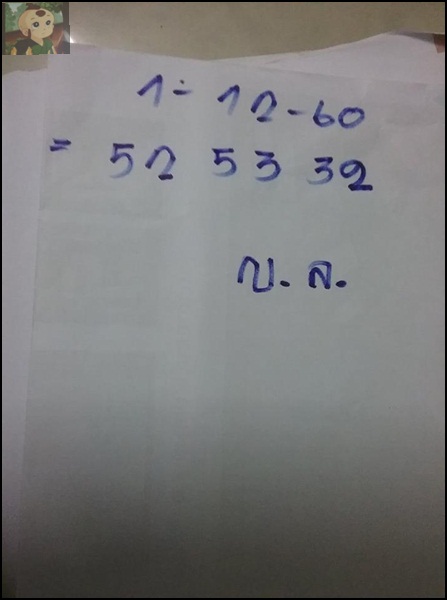 1-12-60
= 52 53 32
ญ.ล.